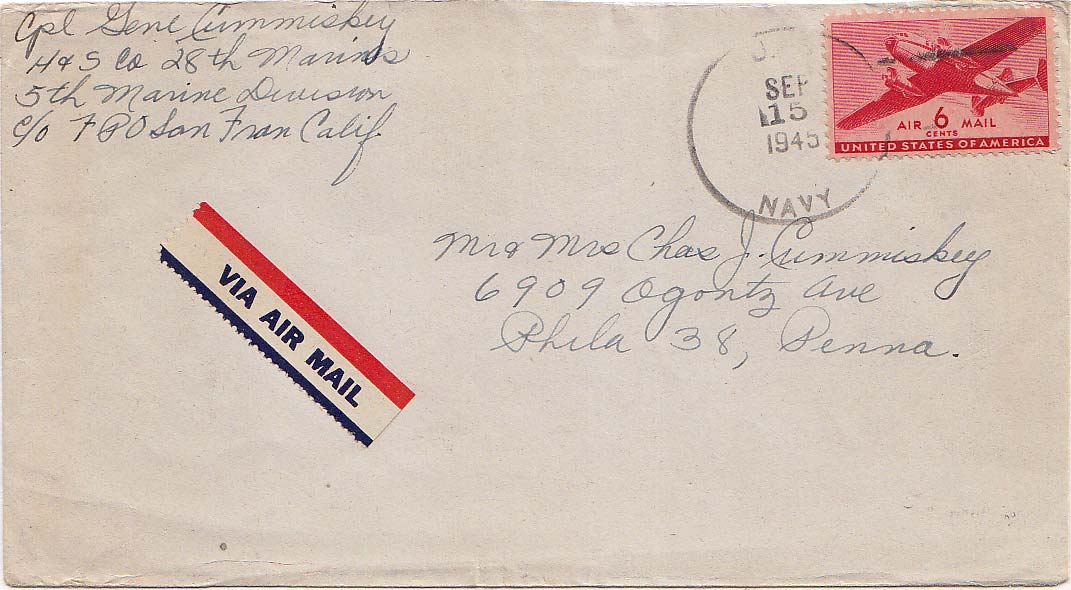 Cpl Gene Cummiskey
H & S Co 28th Marines
5th Marine Division
c/o FPO San Fran Calif
SEP
15
1945
NAVY
AIR 6 MAIL
CENTS
UNITED STATES OF AMERICA
VIA AIR MAIL
Mr & Mrs Chas J. Cummiskey
6909 Ogontz Ave
Phila 38, Penna.